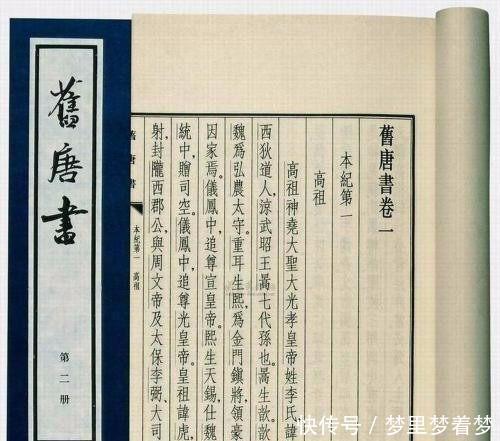 舊唐書
第二册
舊唐書卷一
本紀第一
高祖
高祖神堯大聖大光孝皇帝姓李氏，諱
西狄道人，涼武昭王暠七代孫也。暠生歆，歆
魏爲弘農太守。重耳生熙，爲金門鎮將，領豪
因家焉。儀鳳中，追尊宣皇帝。熙生天錫，仕魏
統中，贈司空。儀鳳中，追尊光皇帝。皇祖諱虎，
射，封隴西郡公，與周文帝及太保李弼、大司
舊唐書
本紀第一 高祖
快传号 / 梦里梦着梦